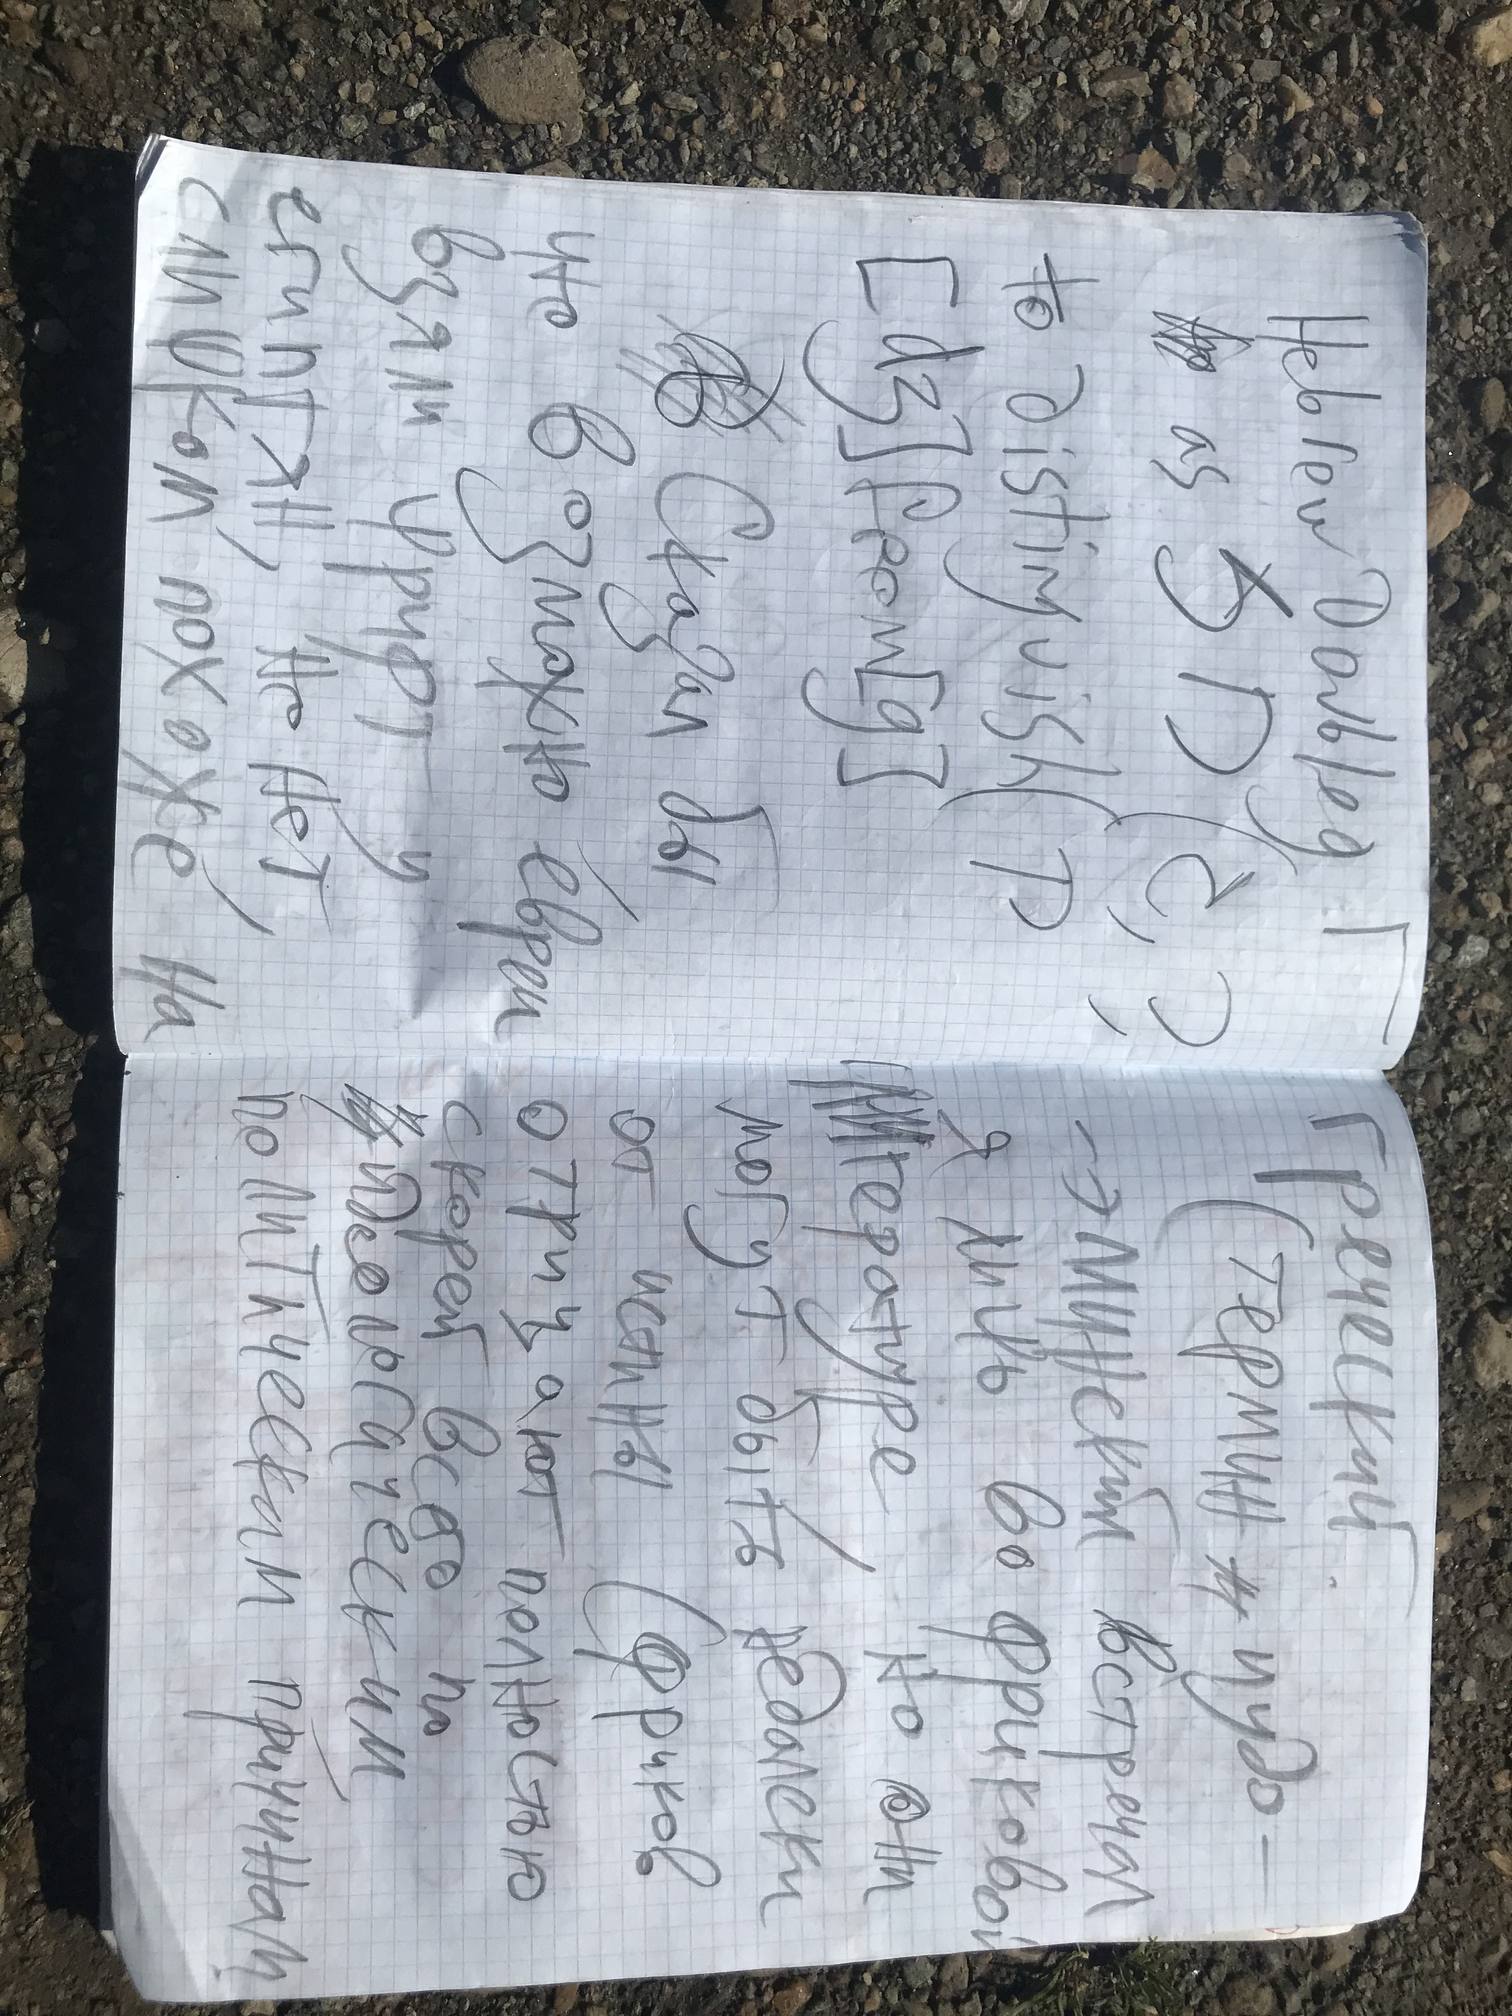 Hebrew Doubled Г
as
to distinguish (ר
[dʒ] from [g]
Сказал бы
что возможно евреи
взяли шрифт у
египтян, но нет
слишком похоже, на
Греческий.
(термин иудо-
-элинский встречал
я лишь во фриковой
литературе, но они
могут быть недалеки
от истины (фриков
отрицают полностью
скорей всего по
идеологическим
политическим причинам